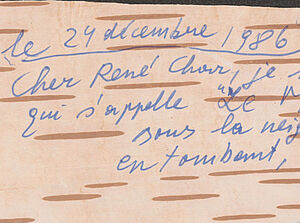 le 24 décembre 1986
Cher René Char, je
qui s'appelle "Le
sous la neig
en tombant,